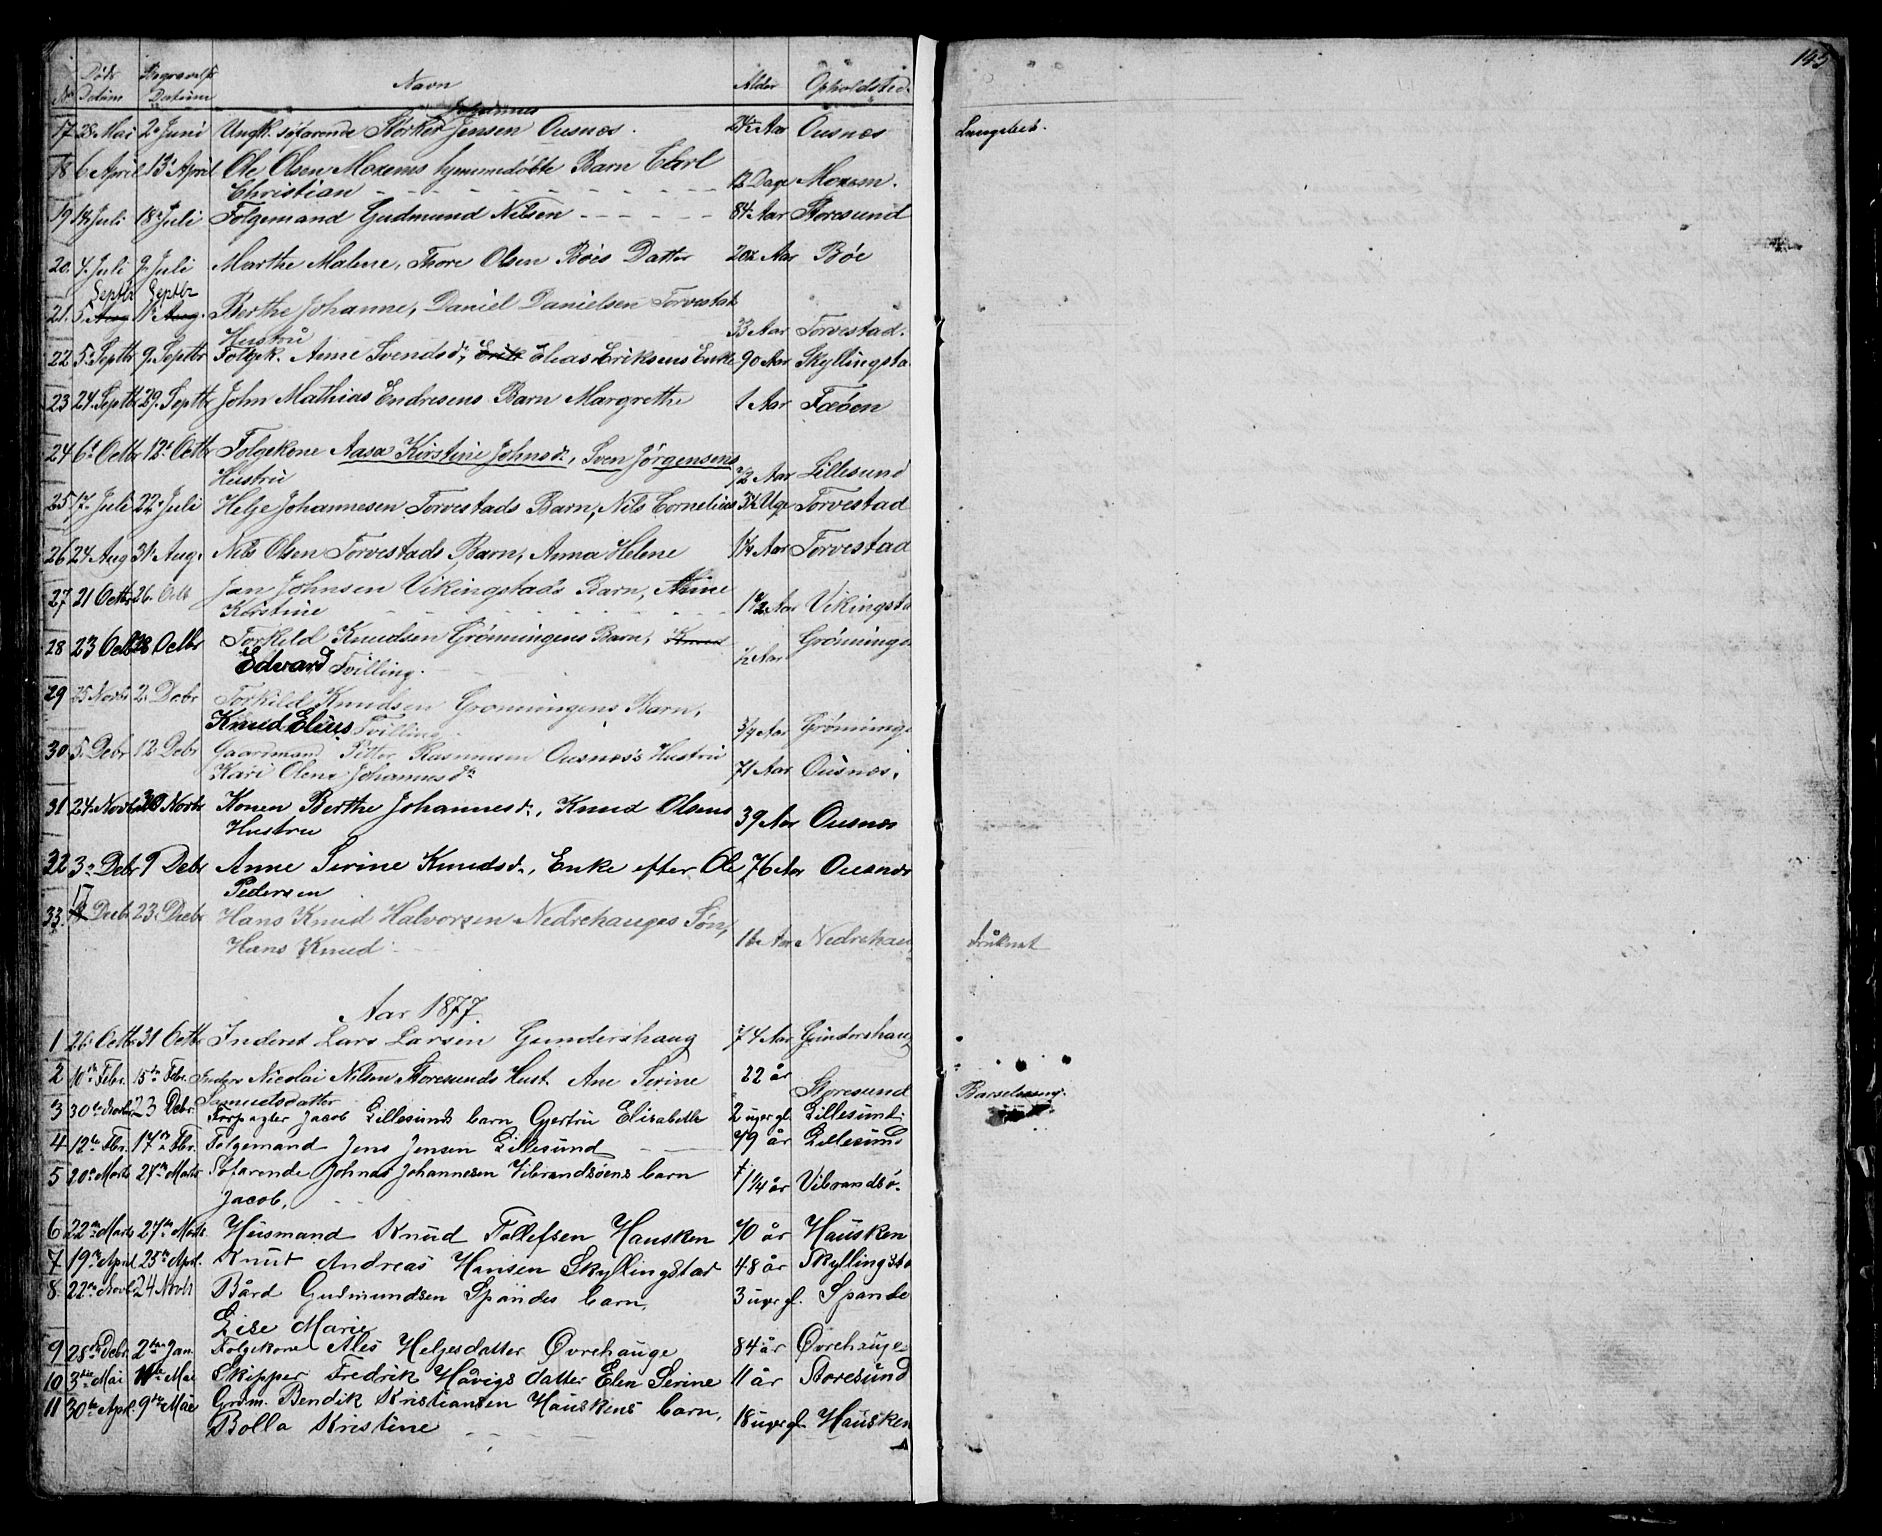 145
No Døds Datum Begravelses Datum Navn Alder Opholdsted
Johannes
17 28 Mai 2 Juni Ungk. søfarende Størker Jensen Ousnes. 24½ Aar Ousnes Lungebet.
18 6 April 13 April Ole Olsen Moxems hjemmedøbte Barn Carl
Christian 12 Dage Moxem.
19 14 Juli 18 Juli Folgemand Gudmund Nilsen 84 Aar Storesund
20. 4. Juli 9 Juli Marthe Malene, Thore Olsen Bøes Datter 20½ Aar Bøe
Septbr Septbr
21. 5. Aug 11 Aug. Berthe Johanne, Daniel Danielsen Torvestads
Hustru 33 Aar Torvestad.
22 5. Septbr 9. Septbr Folgek. Anne Svendsd., Erik Elias Eriksens Enke 90 Aar Skyllingsta
23 24. Septbr 29. Septbr John Mathias Endresens Barn Margrethe 1 Aar Fæøen
24 6 Octbr 12 Octbr Folgekone Aasa Kirstine Johnsd., Sven Jørgensens
Hustru Aar Lillesund
25 17 Juli 22 Juli Helje Johannesen Torvestads Barn, Nils Cornelius 3½ Uge Torvestad
26 24 Aug 31 Aug. Nils Olsen Torvestads Barn, Anna Helene 1½ Aar Torvestad
27 21 Octbr 26. Octb Jan Johnsen Vikingstads Barn, Stine
Kirstine 1½ Aar Vikingsta
28 23 Octb 28 Octbr Torkild Knudsen Grønningens Barn, Knud
Edvard Tvilling. ½ Aar Grønninge
29 25 Novbr 2. Debr Torkild Knudsen Grønningens Barn,
Knud Elius Tvilling 3/4 Aar Grønninge
30 5. Debr 12. Debr Gaardmand Pitter Rasmussen Ousnes's Hustru
Kari Olene Johannesd. 71 Aar Ousnes.
31 24. Novbr 30 Novbr Konen Berthe Johannesd., Knud Olsens
Hustru 39 Aar Ousnes
32 3. Debr 9 Debr Anne Serine Knudsd., Enke efter Ole
Pedersen 76 Aar Ousnes
17
33. Debr 23. Debr Hans Knud Halvorsen Nedrehauges Søn,
Hans Knud 16 Aar Nedrehau druknet
Aar 1877.
1 26. Octb 31 Octbr Inderst Lars Larsen Gundershaug 74 Aar Gundershaug
2 10de Febr. 15de Febr. Inders Nicolai Nilsen Storesunds Hust. Ane Serine
Samuelsdatter 22 år Storesund Barselseng.
3 30te Novbr 23 Debr. Forpagter Jacob Lillesunds barn Gjertru Elisabeth 2 uger gl. Lillesund.
4 12te Fbr. 17de Fbr. Folgemand Jens Jensen Lillesund 79 år Lillesund
5 20de Marts 24de Marts Søfarende Johnas Johannesen Vibrandsøens barn
Jacob, 1/4 år Vibrandsø.
6 22de Marts 27de Marts. Husmand Knud Tollefsen Hausken 70 år Hausken
7 19de April 25de April. Knut Andreas Hansen Skyllingstad 48 år Skyllingsta
8. 22de Novbr 24 Novbr Bård Gudmundsen Spandes barn,
Lise Marie 3 uger gl. Spande
9 28de Debr. 2den Jan. Folgekone Ales Helgesdatter Øvrehauge 84 år Øvrehauge
10 3die Mai 11te Mai Skipper Fredrik Håvigs datter Elen Serine 11 år Storesund
11 30te Apr. 9de Mai Grdm. Bendik Kristiansen Hauskens barn,
Bolla Kristine 18 uger gl Hausken